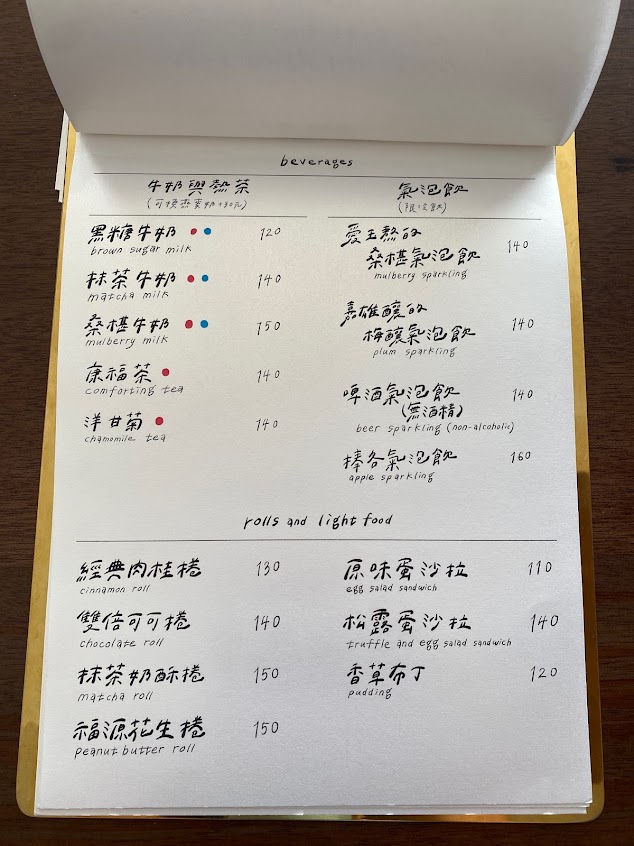 beverages
牛奶與熱茶
(可換燕麥奶+30元)
黑糖牛奶 120
brown sugar milk
抹茶牛奶 140
matcha milk
桑椹牛奶 150
mulberry milk
康福茶 140
comforting tea
洋甘菊 140
chamomile tea
氣泡飲
(限冷飲)
愛玉熬的
桑椹氣泡飲 140
mulberry sparkling
嘉雄釀的
梅釀氣泡飲 140
plum sparkling
啤酒氣泡飲 140
(無酒精)
beer sparkling (non-alcoholic)
捧各氣泡飲 160
apple sparkling
rolls and light food
經典肉桂捲 130
cinnamon roll
雙倍可可捲 140
chocolate roll
抹茶奶酥捲 150
matcha roll
福源花生捲 150
peanut butter roll
原味蛋沙拉 110
egg salad sandwich
松露蛋沙拉 140
truffle and egg salad sandwich
香草布丁 120
pudding